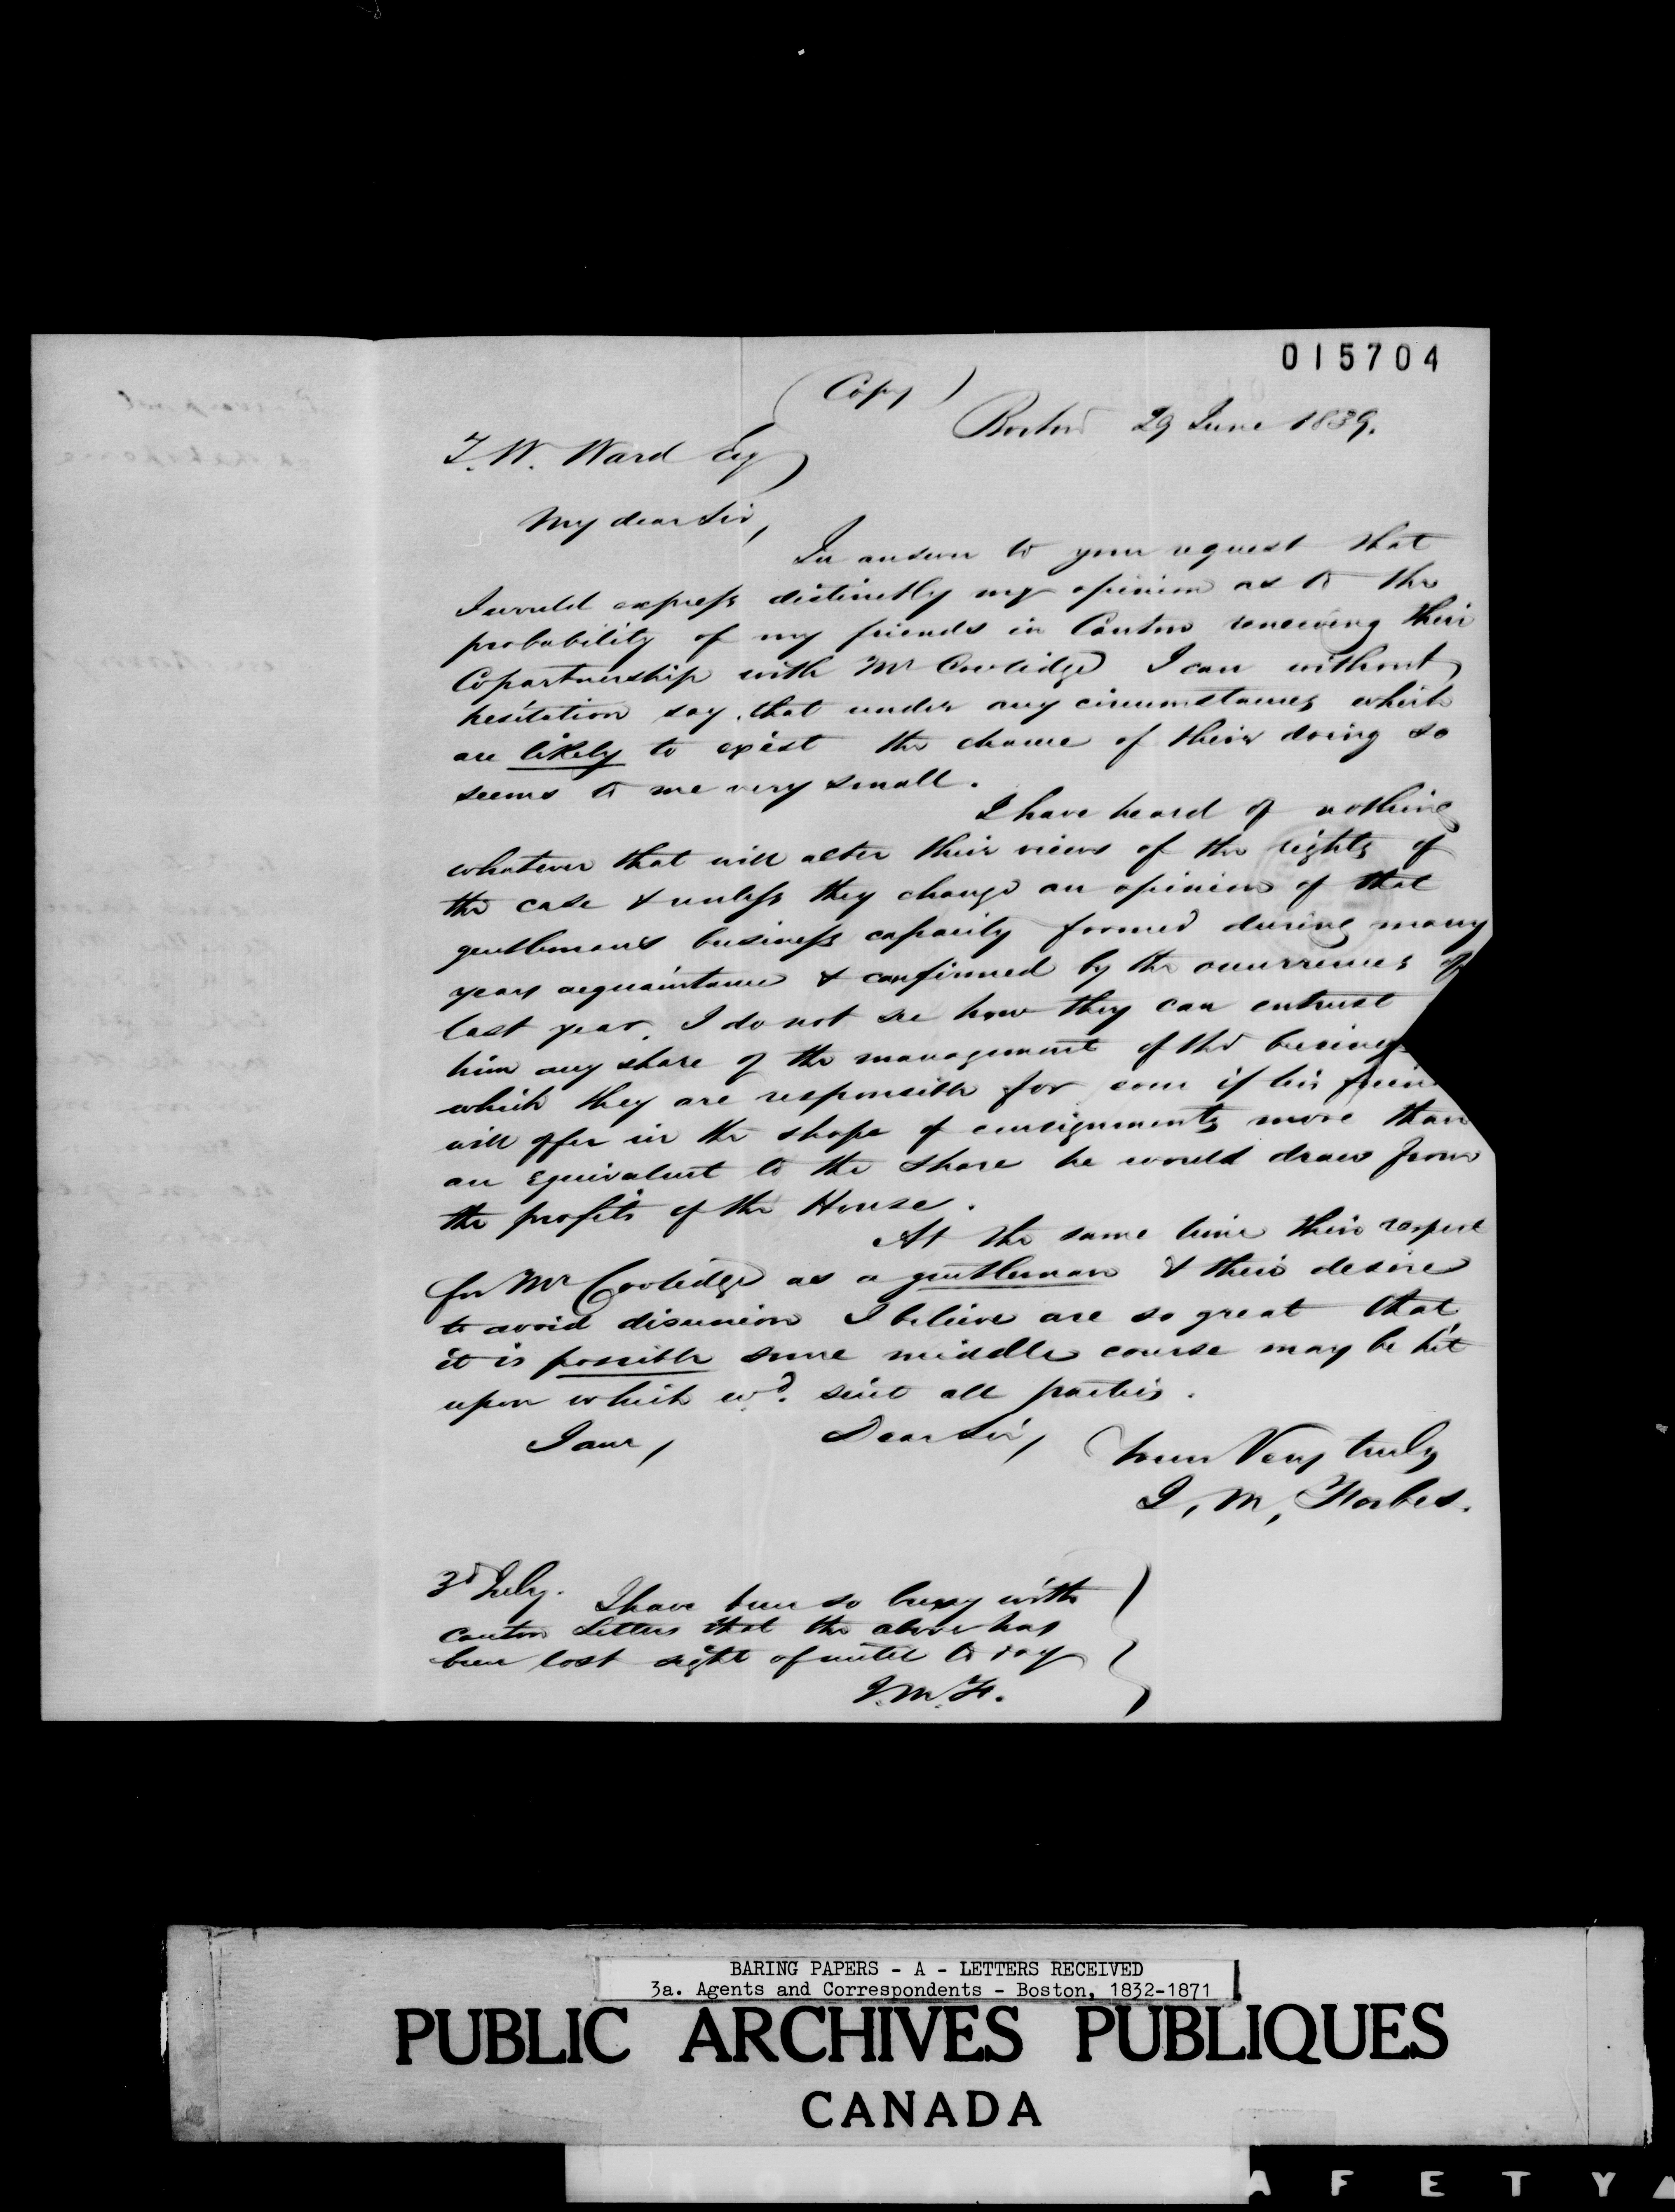 015704
(Copy)
Boston 29 June 1839.
T. W. Ward Esq
My dear Sir,
In answer to your request that
I would express distinctly my opinion as to the
probability of my friends in Canton renewing their
Copartnership with Mr Coolidge I can without
hesitation say, that under any circumstances which
are likely to exist the chance of their doing so
seems to me very small.
I have heard of nothing
whatever that will alter their views of the rights of
the case & unless they change an opinion of that
gentleman's business capacity formed during many
years acquaintance & confirmed by the occurrences of
last year, I do not see how they can entrust
him any share of the management of the business
which they are responsible for even if his frien
will offer in the shape of consignments more than
an equivalent to the share he would draw from
the profits of the House.
At the same time their respect
for Mr Coolidge as a gentleman & their desire
to avoid disunion I believe are so great that
it is possible some middle course may be hit
upon which wd. suit all parties.
I am, Dear Sir, Yours Very truly
J. M. Forbes.
3d July. I have been so busy with
Canton Letters that the above has
been lost sight of until to day
J. M. F.
BARING PAPERS - A - LETTERS RECEIVED
3a. Agents and Correspondents - Boston, 1832-1871
PUBLIC ARCHIVES PUBLIQUES
CANADA
A F E T Y